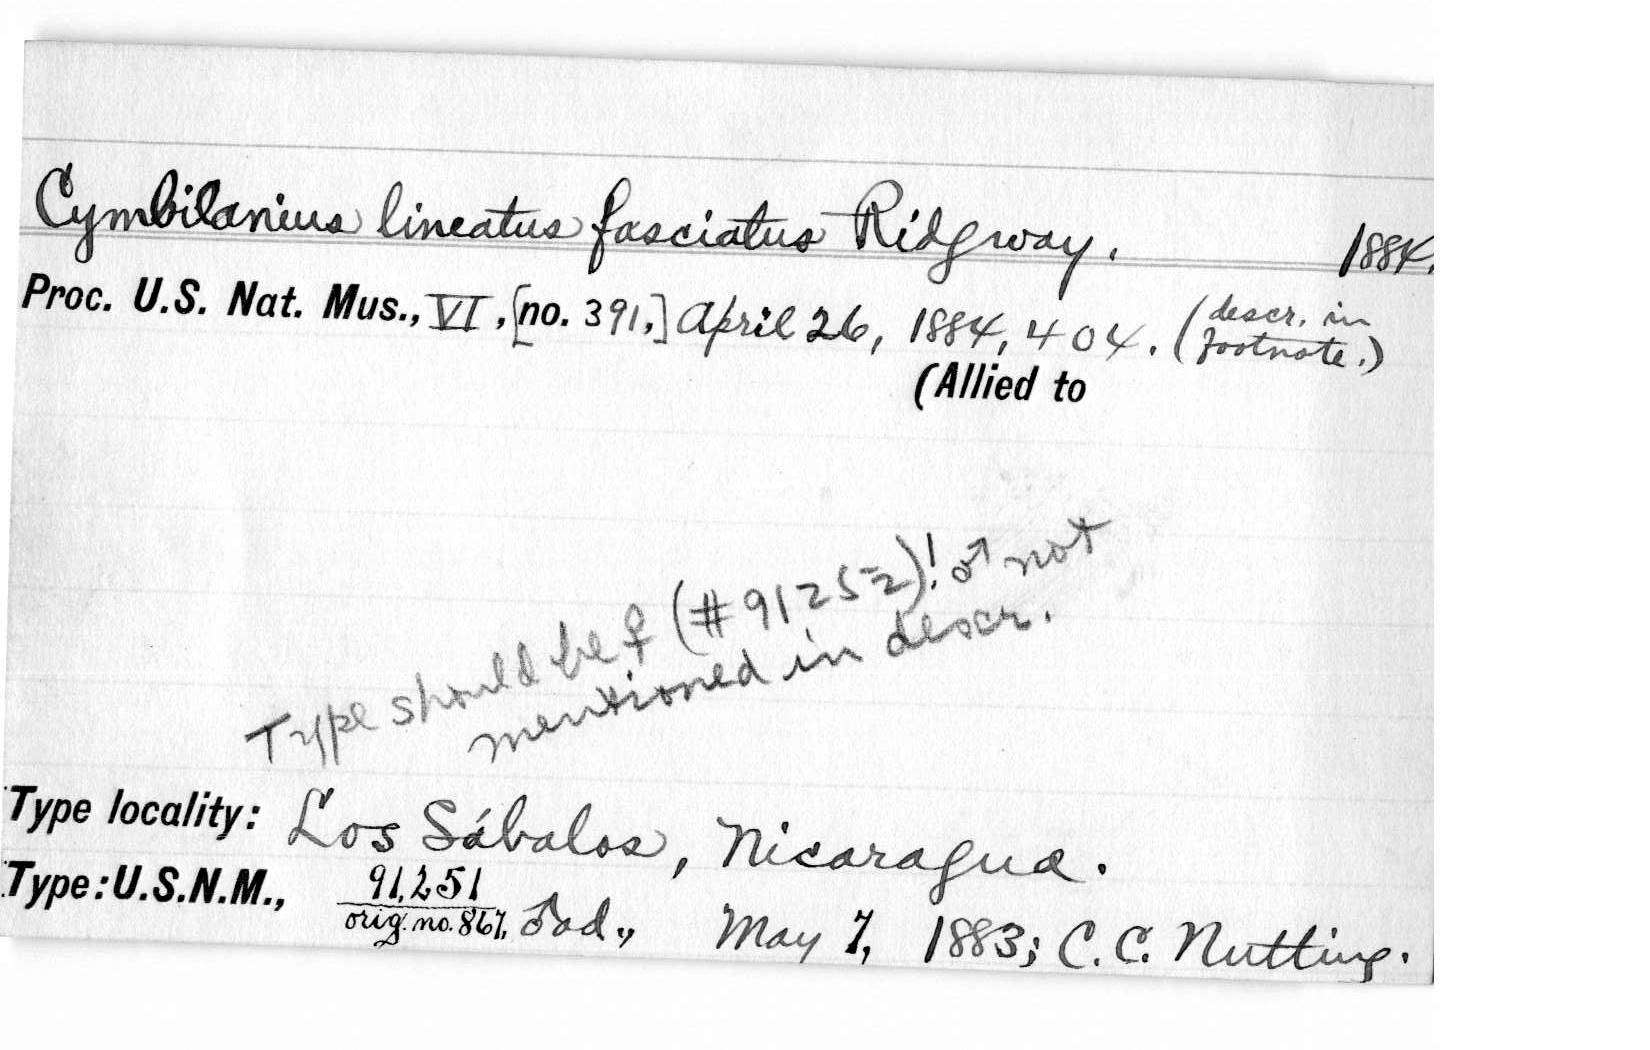 Cymbilanius lineatus fasciatus Ridgway. 1884.
Proc. U.S. Nat. Mus., VI, [no. 391,] April 26, 1884, 404. (descr. in footnote.)
(Allied to
Type should be ♀ (#91252)! ♂ not
mentioned in descr.
Type locality: Los Sábalos, Nicaragua.
Type: U.S.N.M., 91,251 orig. no. 867, ♂ ad., May 7, 1883; C. C. Nutting.